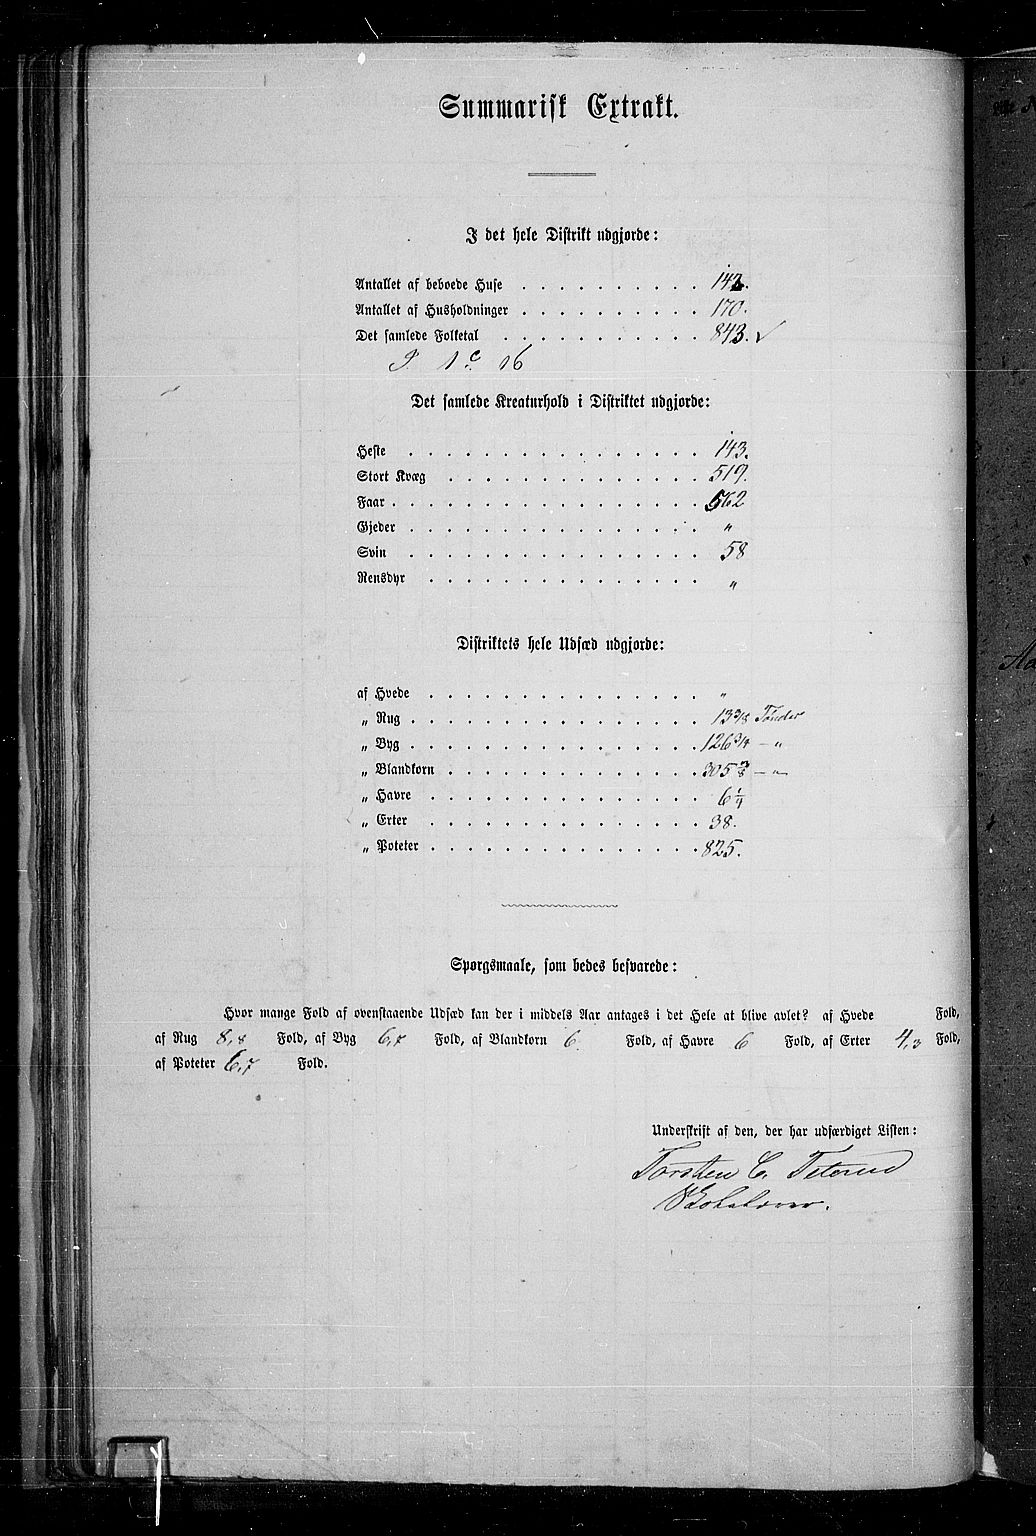 Summarisk Extrakt.
I det hele Distrikt udgjorde:
Antallet af beboede Huse . . . . . . . . . . 142.
Antallet af Husholdninger . . . . . . . . . . 170.
Det samlede Folketal . . . . . . . . . . . 843. ✓
P. 1 c. 16
Det samlede Kreaturhold i Distriktet udgjorde:
Heste . . . . . . . . . . . . . . . . 143.
Stort Kvæg . . . . . . . . . . . . . . 519.
Faar . . . . . . . . . . . . . . . . . 562
Gjeder . . . . . . . . . . . . . . . . "
Svin . . . . . . . . . . . . . . . . 58
Rensdyr . . . . . . . . . . . . . . . "
Distriktets hele Udsæd udgjorde:
af Hvede . . . . . . . . . . . . . . . "
„ Rug . . . . . . . . . . . . . . . . 13 3/8 Tønder
„ Byg . . . . . . . . . . . . . . . . 126 3/4 — "
„ Blandkorn . . . . . . . . . . . . . . 305 3/8 — "
„ Havre . . . . . . . . . . . . . . . 6 1/4
„ Erter . . . . . . . . . . . . . . . 38.
„ Poteter . . . . . . . . . . . . . . . 825.
Spørgsmaale, som bedes besvarede:
Hvor mange Fold af ovenstaaende Udsæd kan der i middels Aar antages i det Hele at blive avlet? af Hvede Fold,
af Rug 8,8 Fold, af Byg 6,7 Fold, af Blandkorn 6 Fold, af Havre 6 Fold, af Erter 4,3 Fold,
af Poteter 6,7 Fold.
Underskrift af den, der har udfærdiget Listen:
Torsten C. Teterud